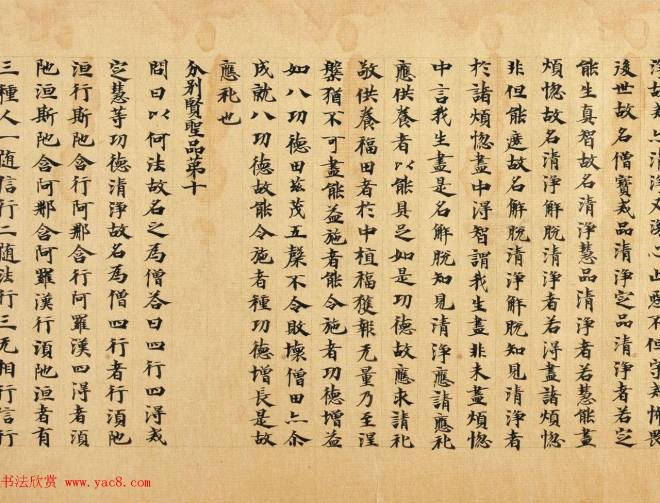 淨故戒亦清淨又深心止惡不但守戒怖畏
後世故名僧寶戒品清淨定品清淨者若定
能生真智故名清淨慧品清淨者若慧能盡
煩惱故名清淨解脫清淨者若得盡諸煩惱
非但能遮故名解脫清淨解脫知見清淨者
於諸煩惱盡中得智謂我生盡非未盡煩惱
中言我生盡是名解脫知見清淨應請應礼
應供養者以能具足如是功德故應求請礼
敬供養福田者於中植福獲報无量乃至涅
槃猶不可盡能益施者能令施者功德增益
如八功德田茲茂五縠不令敗壞僧田亦尒
成就八功德故能令施者種功德增長是故
應礼也
分別賢聖品第十
問曰以何法故名之為僧荅曰四行四得戒
定慧等功德清淨故名為僧四行者行須陁
洹行斯陁含行阿那含行阿羅漢四得者須
陁洹斯陁含阿那含阿羅漢行須陁洹者有
三種人一随信行二随法行三无相行信行
书法欣赏 www.yac8.com